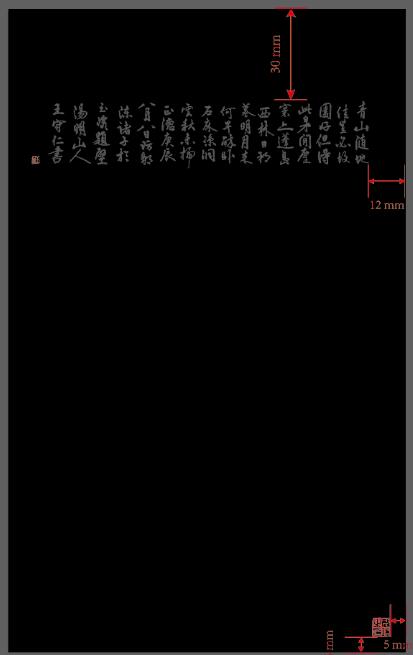 青山隨地
佳豈必故
園好但得
此身間塵
寰亦蓬島
西林日初
暮明月來
何早醉卧
石床涼洞
雲秋未掃
正德庚辰
八月八日訪鄒
陳諸子於
玉巖題壁
陽明山人
王守仁書
30 mm
12 mm
mm
5 m